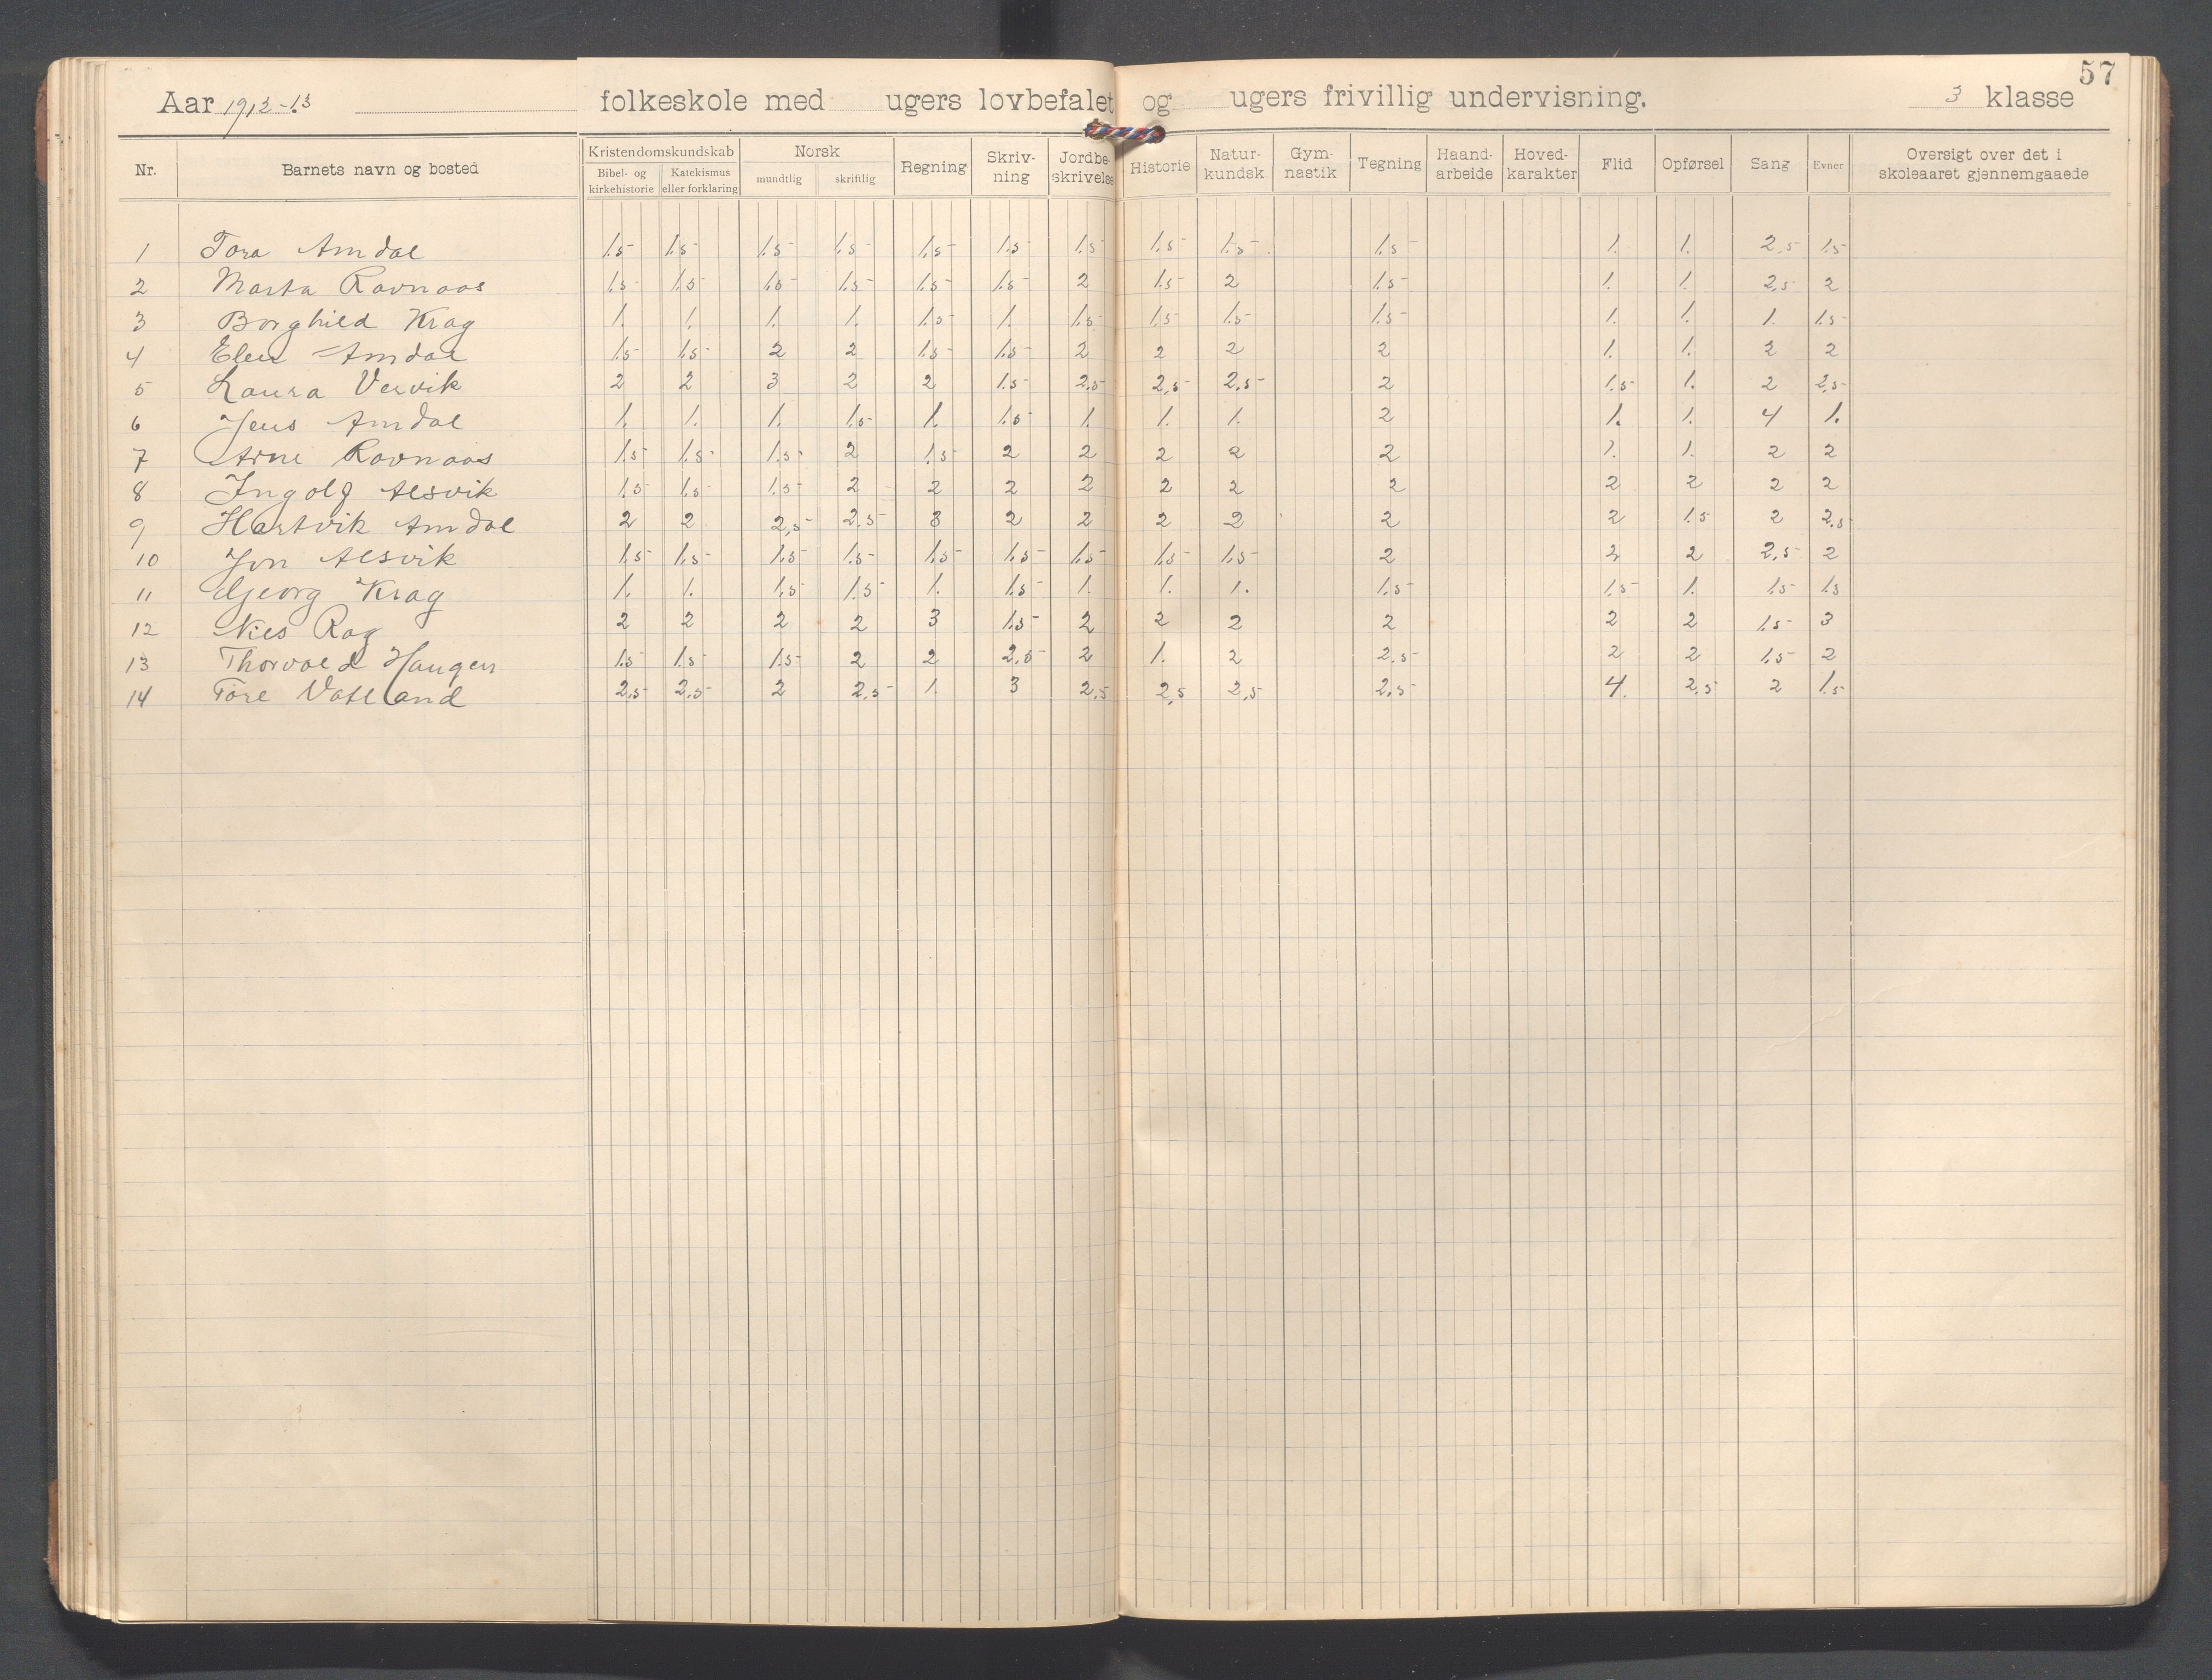 57
Aar 1912-13 folkeskole med ugers lovbefalet og ugers frivillig undervisning. 3 klasse
Nr. Barnets navn og bosted Kristendomskundskab Bibel- og kirkehistorie Katekismus eller forklaring Norsk mundtlig skriftlig Regning Skriv-ning Jordbe-skrivelse Historie Natur-kundsk. Gym-nastik Tegning Haand-arbeide Hoved-karakter Flid Opførsel Sang Evner Oversigt over det i skoleaaret gjennemgaaede
1 Tora Amdal 1.5 1.5 1.5 1.5 1.5 1.5 1.5 1.5 1.5 1.5 1. 1. 2.5 1.5
2 Marta Ravnaas 1.5 1.5 1.5 1.5 1.5 1.5 2 1.5 2 1.5 1. 1. 2.5 2
3 Borghild Krag 1. 1. 1. 1. 1.5 1. 1.5 1.5 1.5 1.5 1. 1. 1. 1.5
4 Elen Amdal 1.5 1.5 2 2 1.5 1.5 2 2 2 2 1. 1. 2 2
5 Laura Vervik 2 2 3 2 2 1.5 2.5 2.5 2.5 2 1.5 1. 2 2.5
6 Jens Amdal 1. 1. 1. 1.5 1. 1.5 1. 1. 1. 2 1. 1. 4 1.
7 Arne Ravnaas 1.5 1.5 1.5 2 1.5 2 2 2 2 2 1. 1. 2 2
8 Ingolf Alsvik 1.5 1.5 1.5 2 2 2 2 2 2 2 2 2 2 2
9 Hartvik Amdal 2 2 2.5 2.5 3 2 2 2 2 2 2 1.5 2 2.5
10 Jon Alsvik 1.5 1.5 1.5 1.5 1.5 1.5 1.5 1.5 1.5 2 2 2 2.5 2
11 Georg Krag 1. 1. 1.5 1.5 1. 1.5 1. 1. 1. 1.5 1.5 1. 1.5 1.5
12 Nils Rag 2 2 2 2 3 1.5 2 2 2 2 2 2 1.5 3
13 Thorvald Haugen 1.5 1.5 1.5 2 2 2.5 2 1. 2 2.5 2 2 1.5 2
14 Tore Vatland 2.5 2.5 2 2.5 1. 3 2.5 2.5 2.5 2.5 4. 2.5 2 1.5